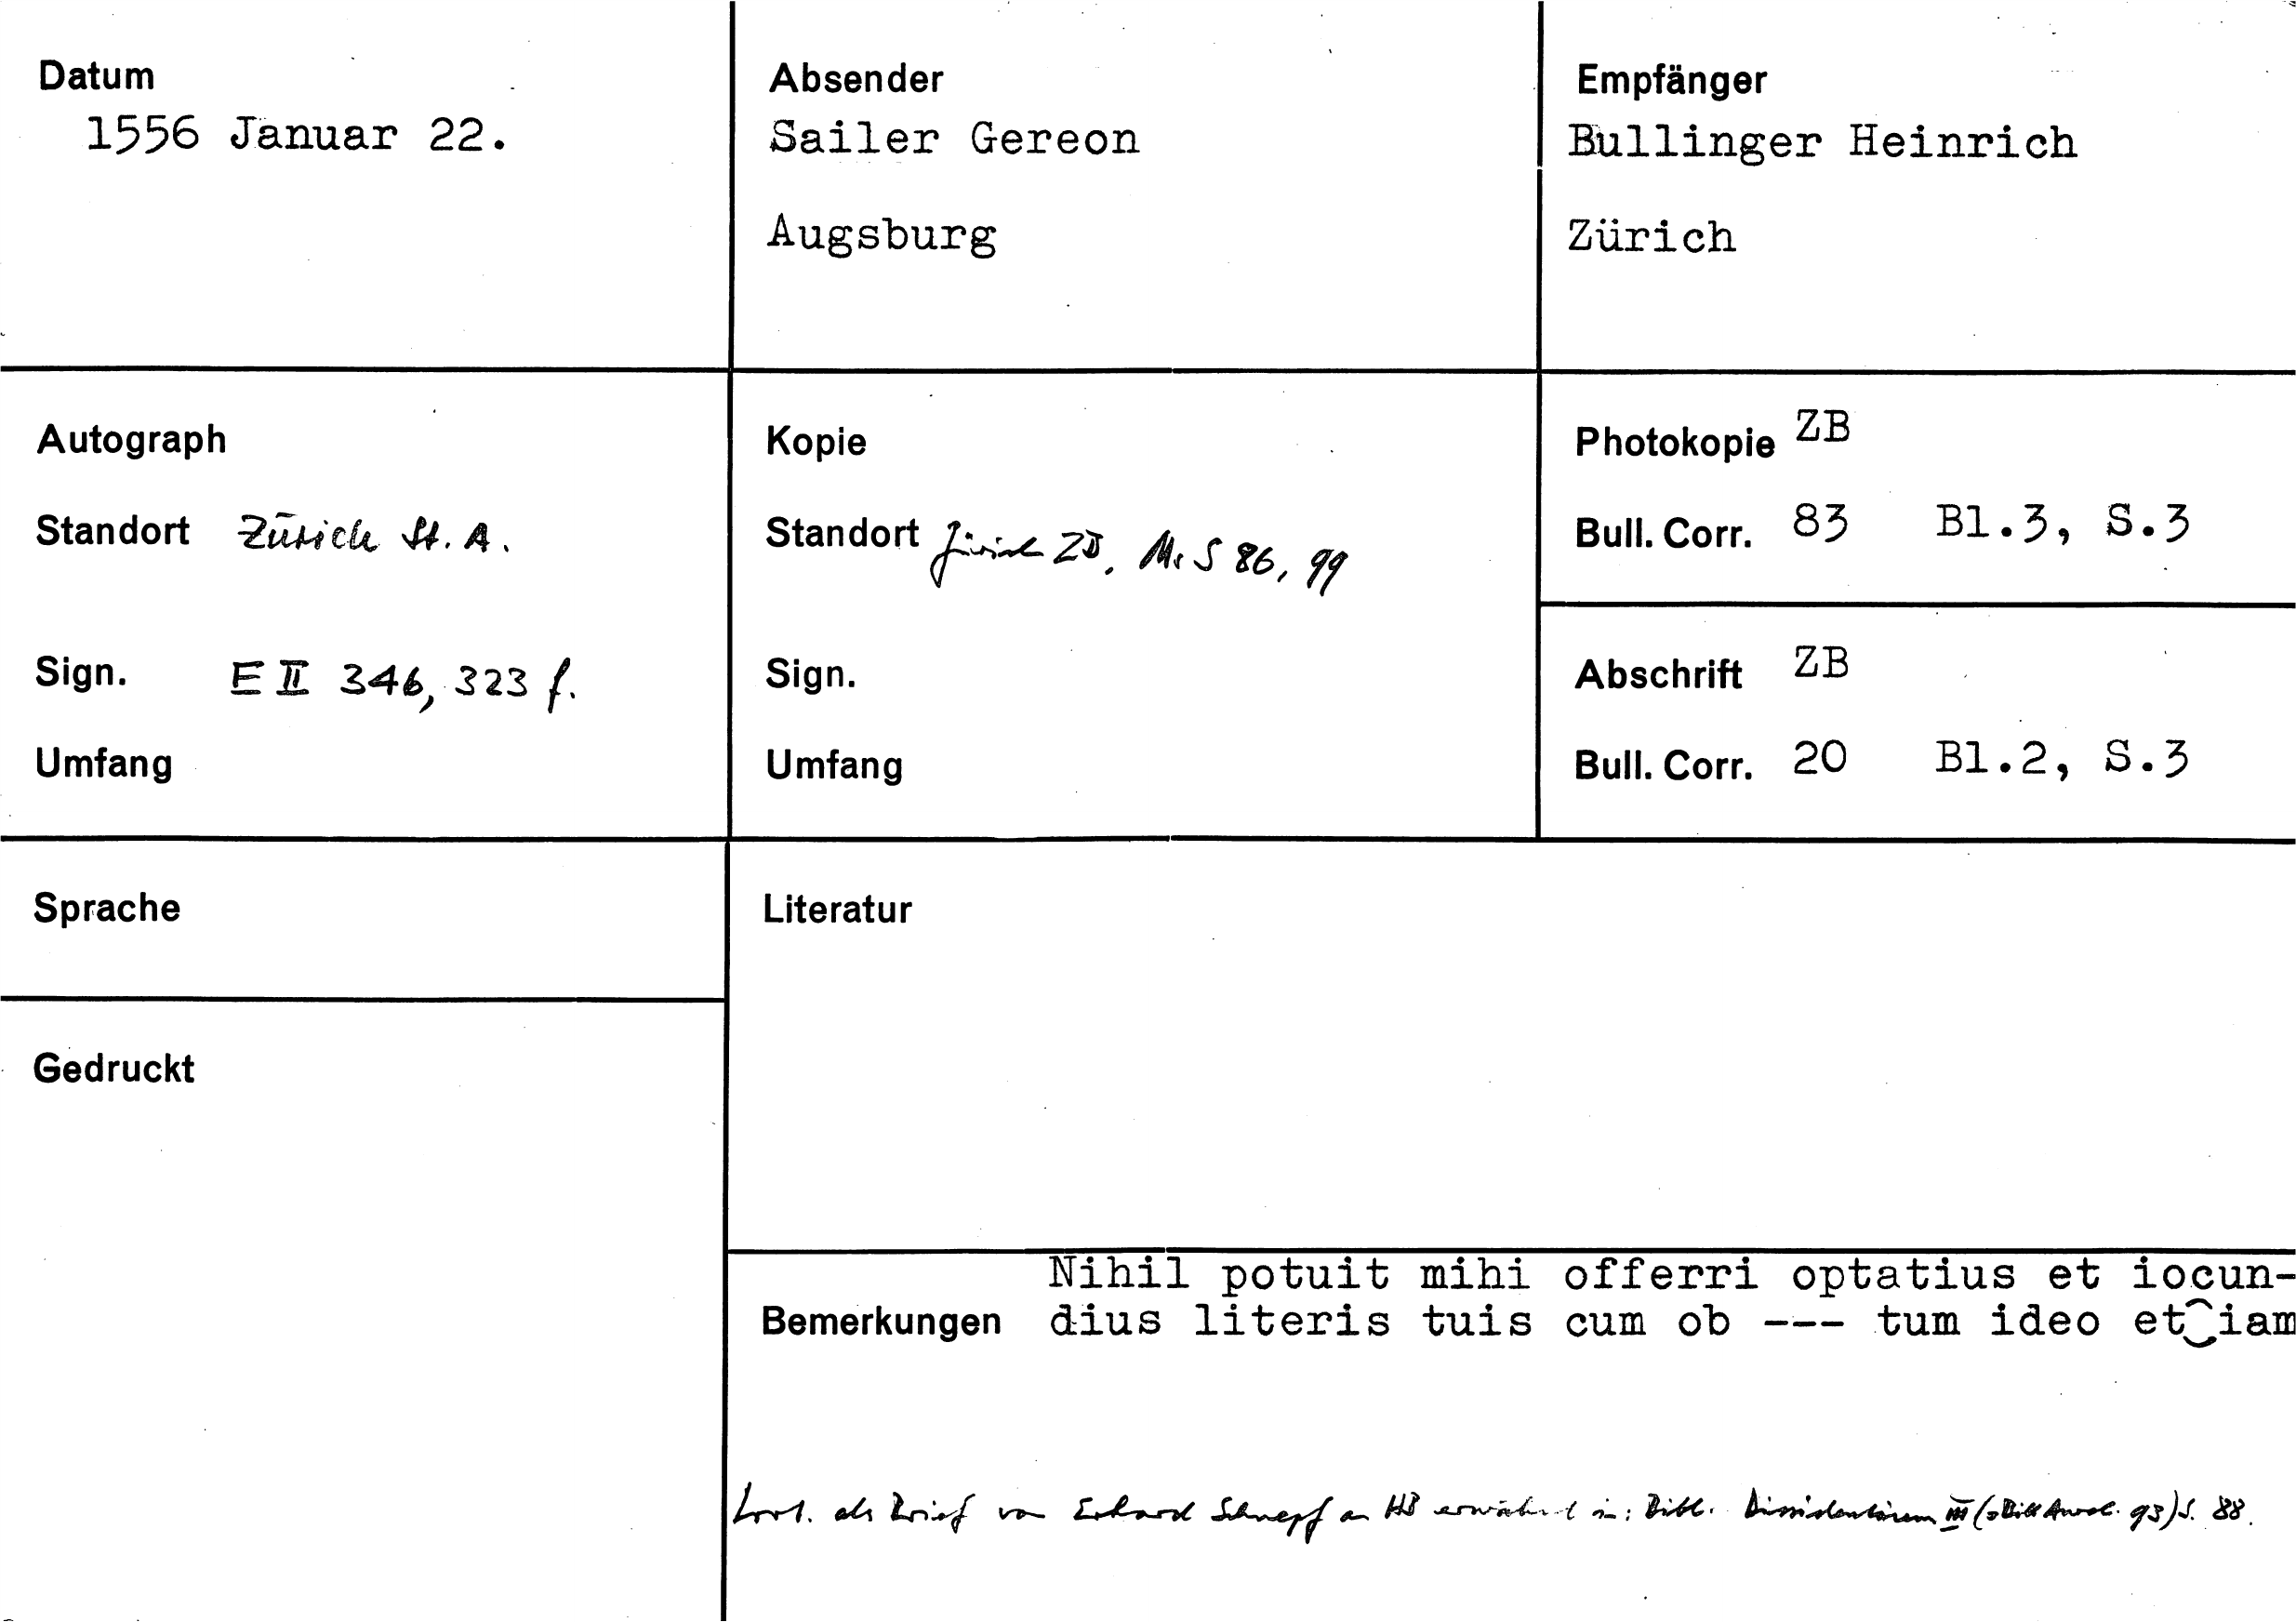 Datum
1556 Januar 22.
Absender
Sailer Gereon
Augsburg
Empfänger
Bullinger Heinrich
Zürich
Autograph
Standort Zürich St. A.
Sign. E II 346, 323 f.
Umfang
Kopie
Standort Zürich ZB, Ms S 86, 99
Sign.
Umfang
Photokopie ZB
Bull. Corr. 83 Bl.3, S.3
Abschrift ZB
Bull. Corr. 20 Bl.2, S.3
Sprache
Gedruckt
Literatur
Bemerkungen
Nihil potuit mihi offerri optatius et iocun-
dius literis tuis cum ob --- tum ideo et iam
als Brief von Erhard Schnepf an HB erwähnt in: Bibl. Dissidentium III ( 93) S. 88.